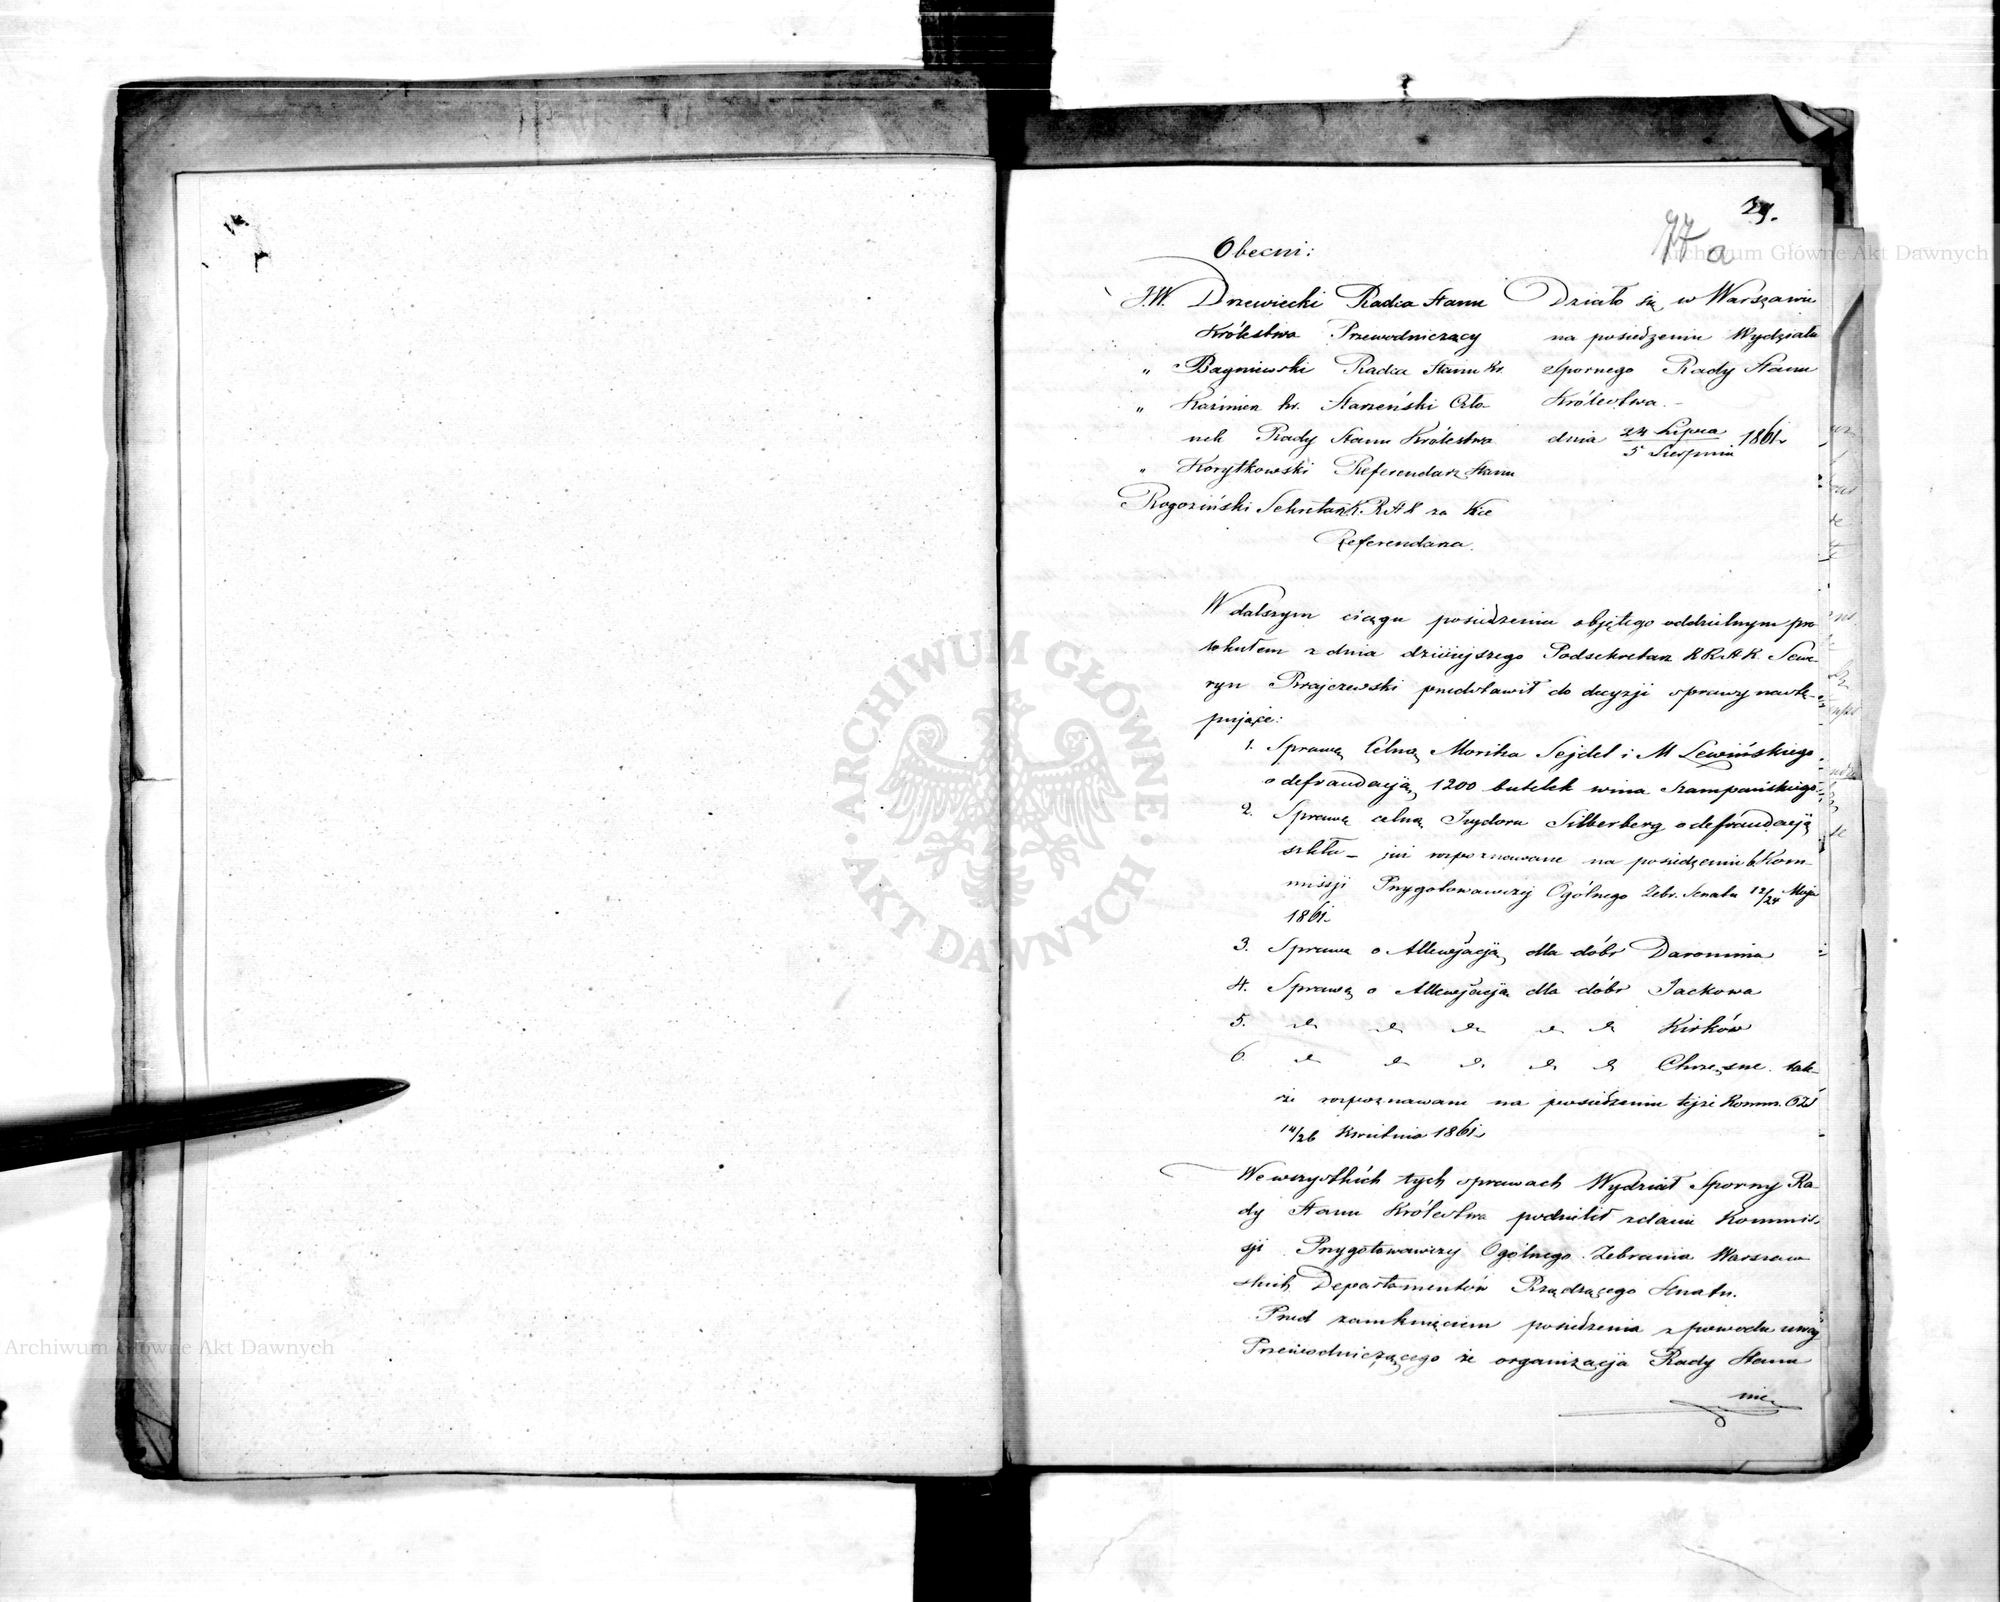 29.
77 a
Obecni:
J.W. Drzewiecki Radca Stanu
Królestwa Przewodniczący
" Bagniewski Radca Stanu Kr.
" Kaźmierz hr. Starzeński Czło-
nek Rady Stanu Królestwa
" Korytkowski Referendarz Stanu
Rogoziński Sekretarz K. R. za Vice
Referendarza.
Działo się w Warszawie
na posiedzeniu Wydziału
Spornego Rady Stanu
Królestwa. –
dnia 24 Lipca / 5 Sierpnia 1861 r.
W dalszym ciągu posiedzenia objętego oddzielnym pro
tokułem z dnia dzisiejszego Podsekretarz Sewe-
ryn Brajczewski przedstawił do decyzji sprawy nastę-
pujące:
1. Sprawę Celną Morika Sejdel i M Lewińskiego
o defraudacją 1200 butelek wina szampańskiego.
2. Sprawę celną Izydora Silberberg o defraudacją
szkła – już rozpoznawane na posiedzeniu b. Kom-
missji Przygotowawczej Ogólnego Zebr. Senatu 12/24 Maja
1861 r.
3. Sprawę o Allewjacją dla dóbr Daromina
4. Sprawę o Allewjacją dla dóbr Jackowa
5. Kirków
6. Chrzęsne. tak-
że rozpoznawane na posiedzeniu tejże Komm. OZS
14/26 Kwietnia 1861 r.
We wszystkich tych sprawach Wydział Sporny Ra-
dy Stanu Królestwa podzielił zdanie Kommis-
sji Przygotowawczej Ogólnego Zebrania Warszaw
skich Departamentów Rządzącego Senatu.
Przed zamknięciem posiedzenia z powodu uwagi
Przewodniczącego że organizacja Rady Stanu
nie
Archiwum Główne Akt Dawnych
ARCHIWUM GŁÓWNE · AKT DAWNYCH ·
Archiwum Główne Akt Dawnych